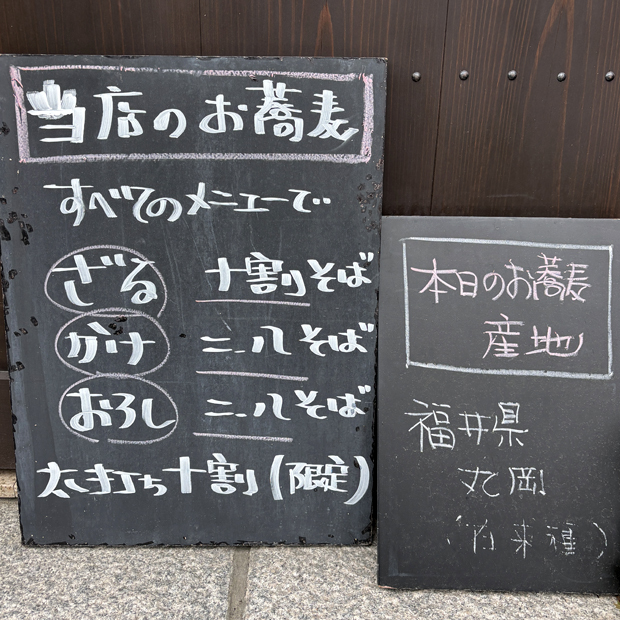 当店のお蕎麦
すべてのメニューで
ざる 十割そば
かけ 二八そば
おろし 二八そば
太打ち十割(限定)
本日のお蕎麦
産地
福井県
丸岡
(在来種)